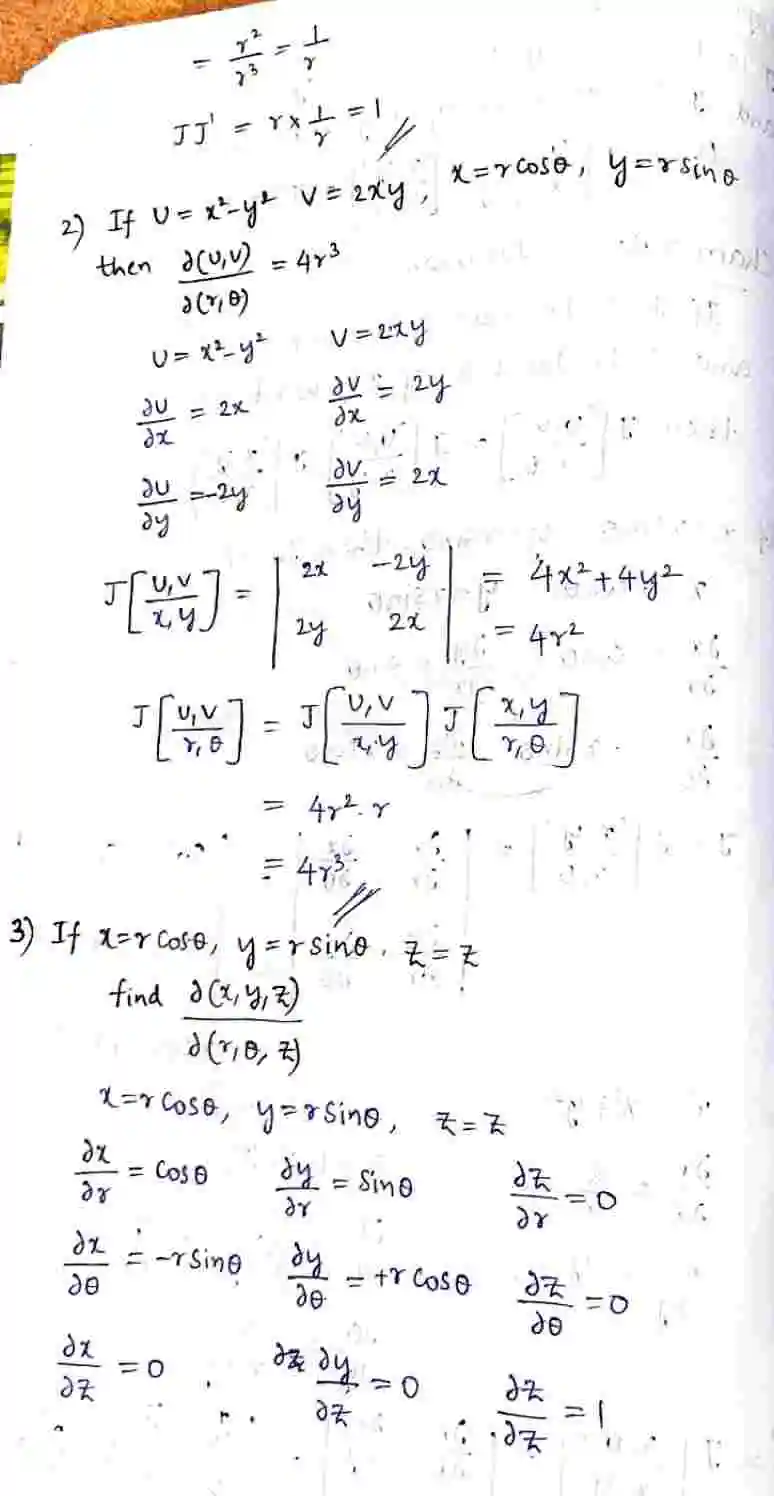 = r²/r³ = 1/r
JJ' = r × 1/r = 1 //
2) If U = x²-y² V = 2xy, x=rcosθ, y=rsinθ
then ∂(U,V)/∂(r,θ) = 4r³
U = x²-y² V = 2xy
∂U/∂x = 2x ∂V/∂x = 2y
∂U/∂y = -2y ∂V/∂y = 2x
J[U,V/x,y] = |2x -2y| = 4x²+4y²
|2y 2x| = 4r²
J[U,V/r,θ] = J[U,V/x,y] J[x,y/r,θ]
= 4r².r
= 4r³ //
3) If x=rcosθ, y=rsinθ, z=z
find ∂(x,y,z)/∂(r,θ,z)
x=rcosθ, y=rsinθ, z=z
∂x/∂r = cosθ ∂y/∂r = sinθ ∂z/∂r = 0
∂x/∂θ = -rsinθ ∂y/∂θ = +rcosθ ∂z/∂θ = 0
∂x/∂z = 0 ∂y/∂z = 0 ∂z/∂z = 1